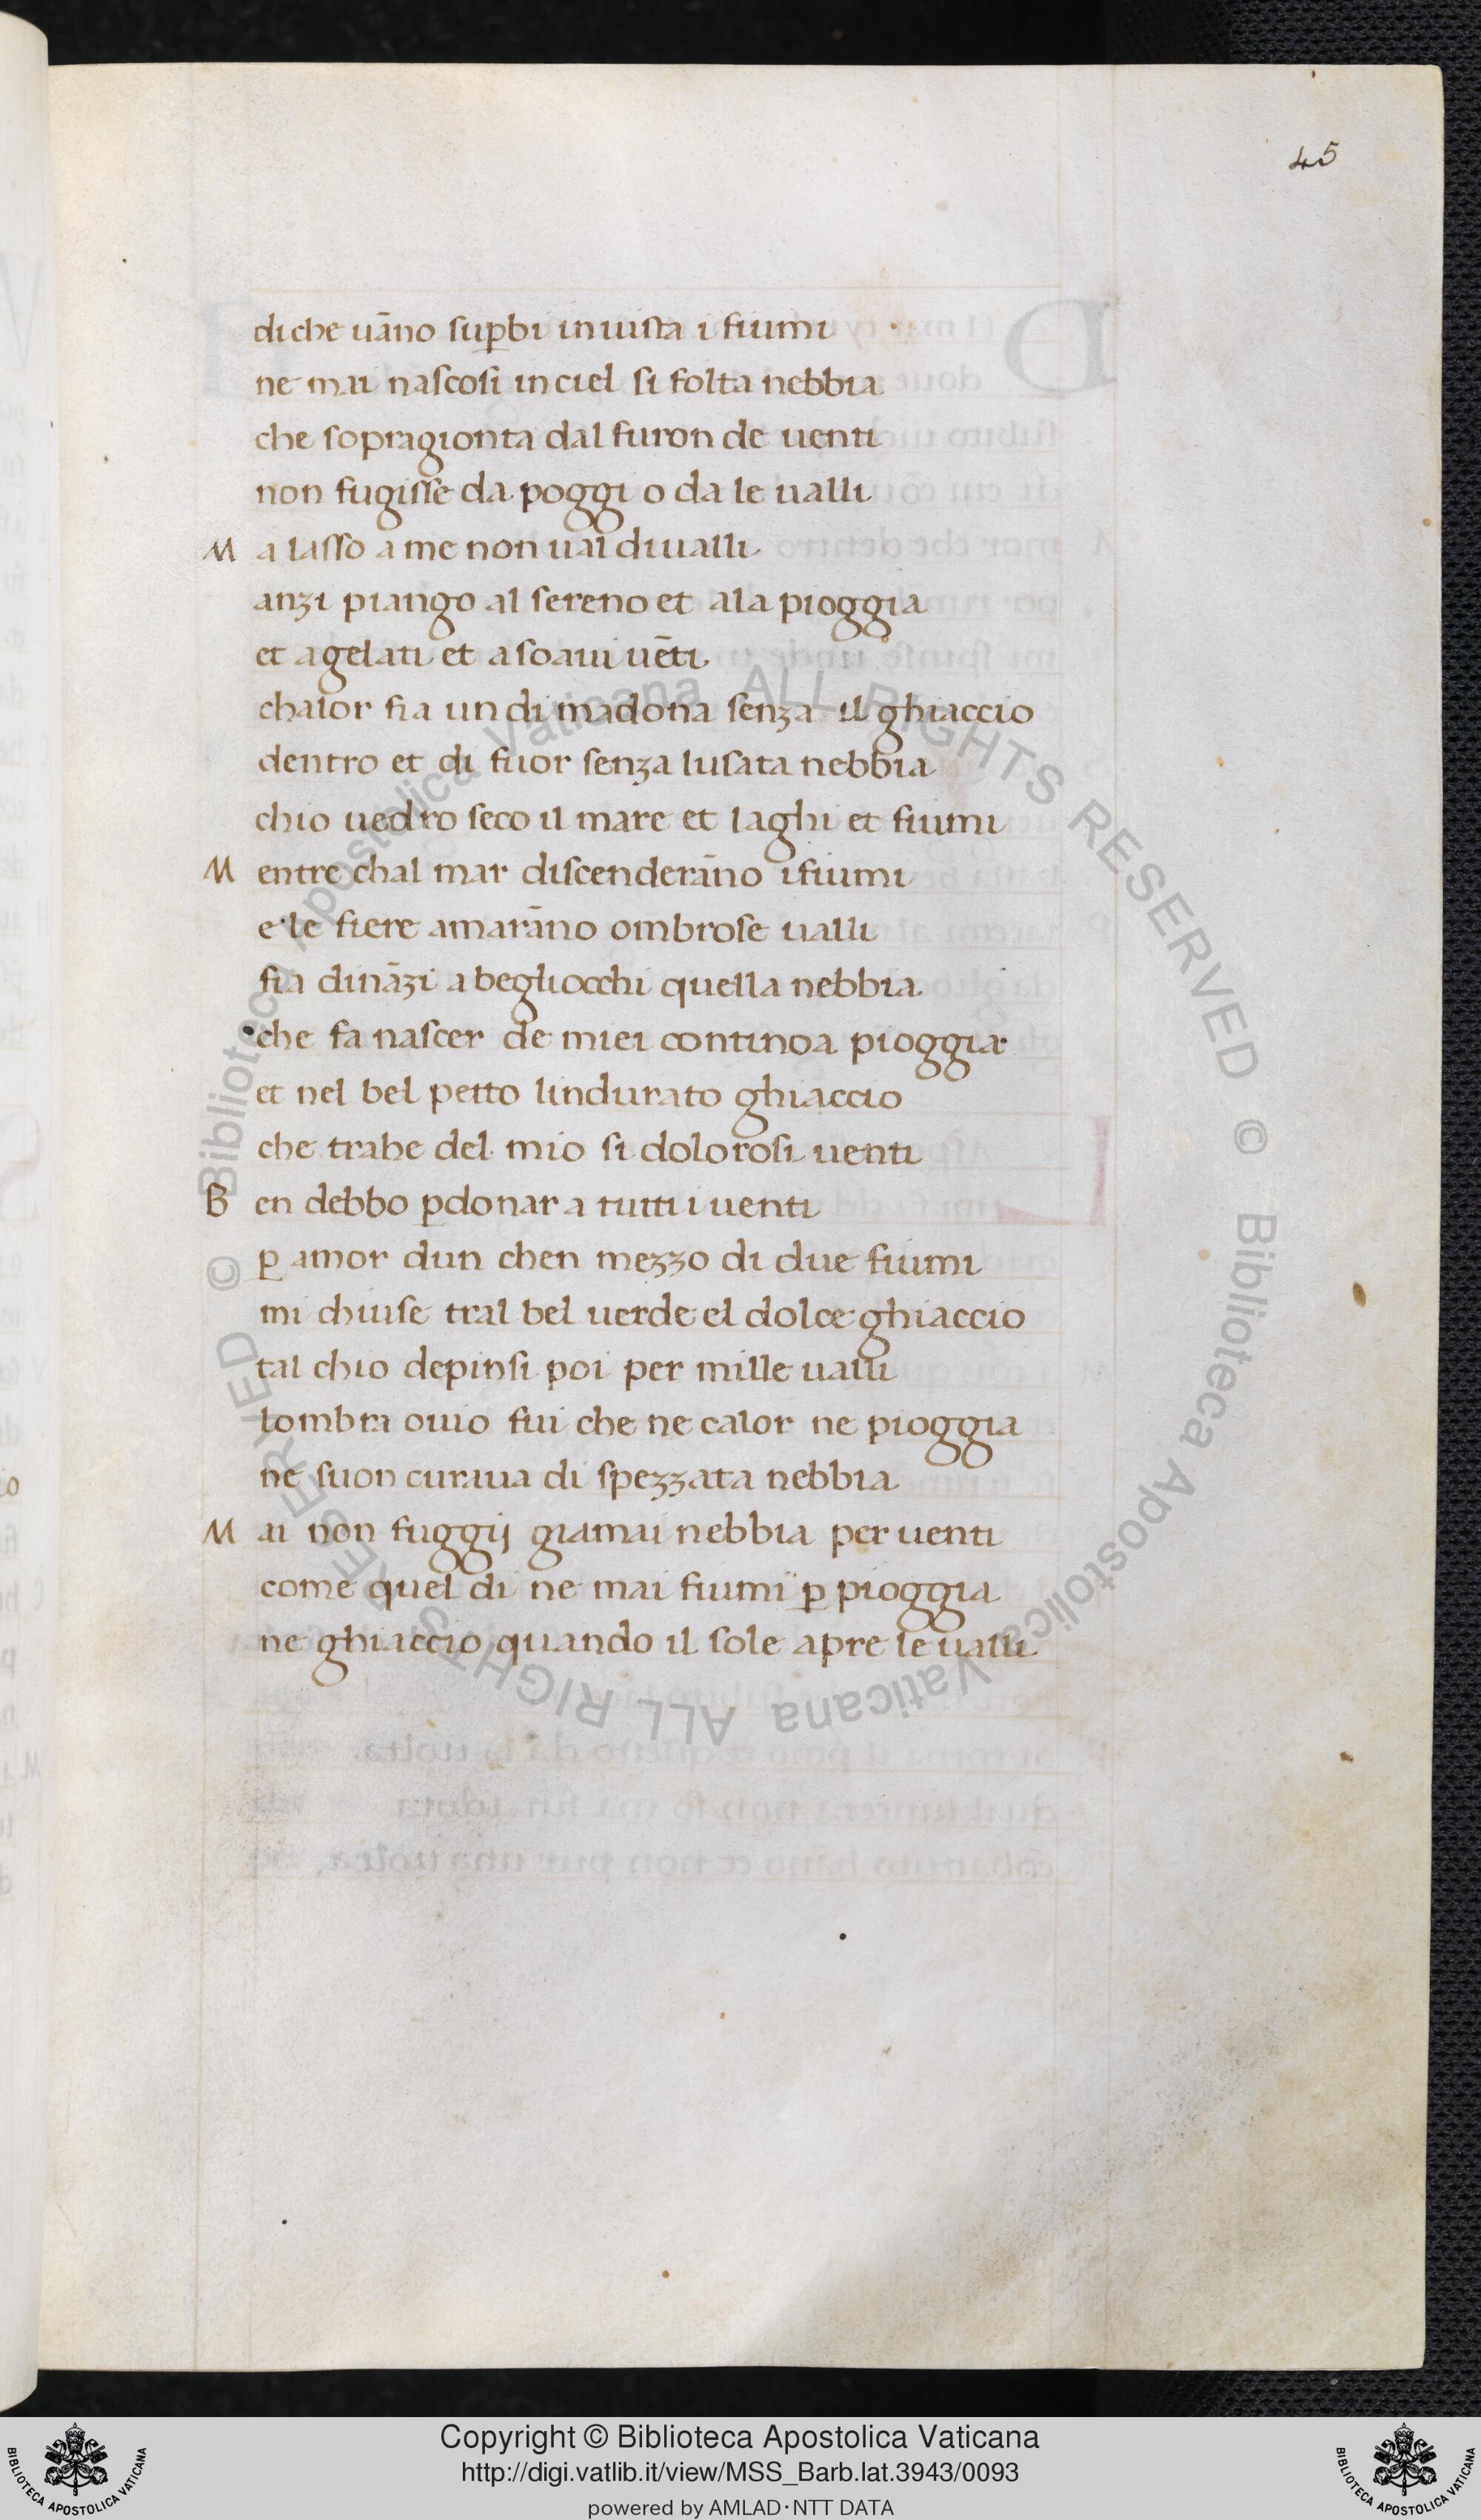 45
di che uāno suꝑbi in uista i fiumi
ne mai nascosi in ciel si folta nebbia
che sopragionta dal furon de uenti
non fugisse da poggi o da le ualli
M a lasso a me non ual di ualli
anzi piango al sereno et a la pioggia
et a gelati et a soaui uēti
chalor fia un di madōna senza il ghiaccio
dentro et di fuor senza lusata nebbia
chio uedro seco il mare et laghi et fiumi
M entre chal mar discenderāno i fiumi
e le fiere amarāno ombrose ualli
fia dināzi a begliocchi quella nebbia
che fa nascer de miei continoa pioggia
et nel bel petto lindurato ghiaccio
che trahe del mio si dolorosi uenti
B en debbo ꝑdonar a tutti i uenti
ꝑ amor dun chen mezzo di due fiumi
mi chiuse tral bel uerde el dolce ghiaccio
tal chio depinsi poi per mille ualli
lombra ouio fui che ne calor ne pioggia
ne suon curaua di spezzata nebbia
M ai non fuggij giamai nebbia per uenti
come quel di ne mai fiumi ꝑ pioggia
ne ghiaccio quando il sole apre le ualli
© Biblioteca Apostolica Vaticana ALL RIGHTS RESERVED © Biblioteca Apostolica Vaticana ALL RIGHTS RESERVED
Copyright © Biblioteca Apostolica Vaticana
http://digi.vatlib.it/view/MSS_Barb.lat.3943/0093
powered by AMLAD·NTT DATA
BIBLIOTECA APOSTOLICA VATICANA
BIBLIOTECA APOSTOLICA VATICANA